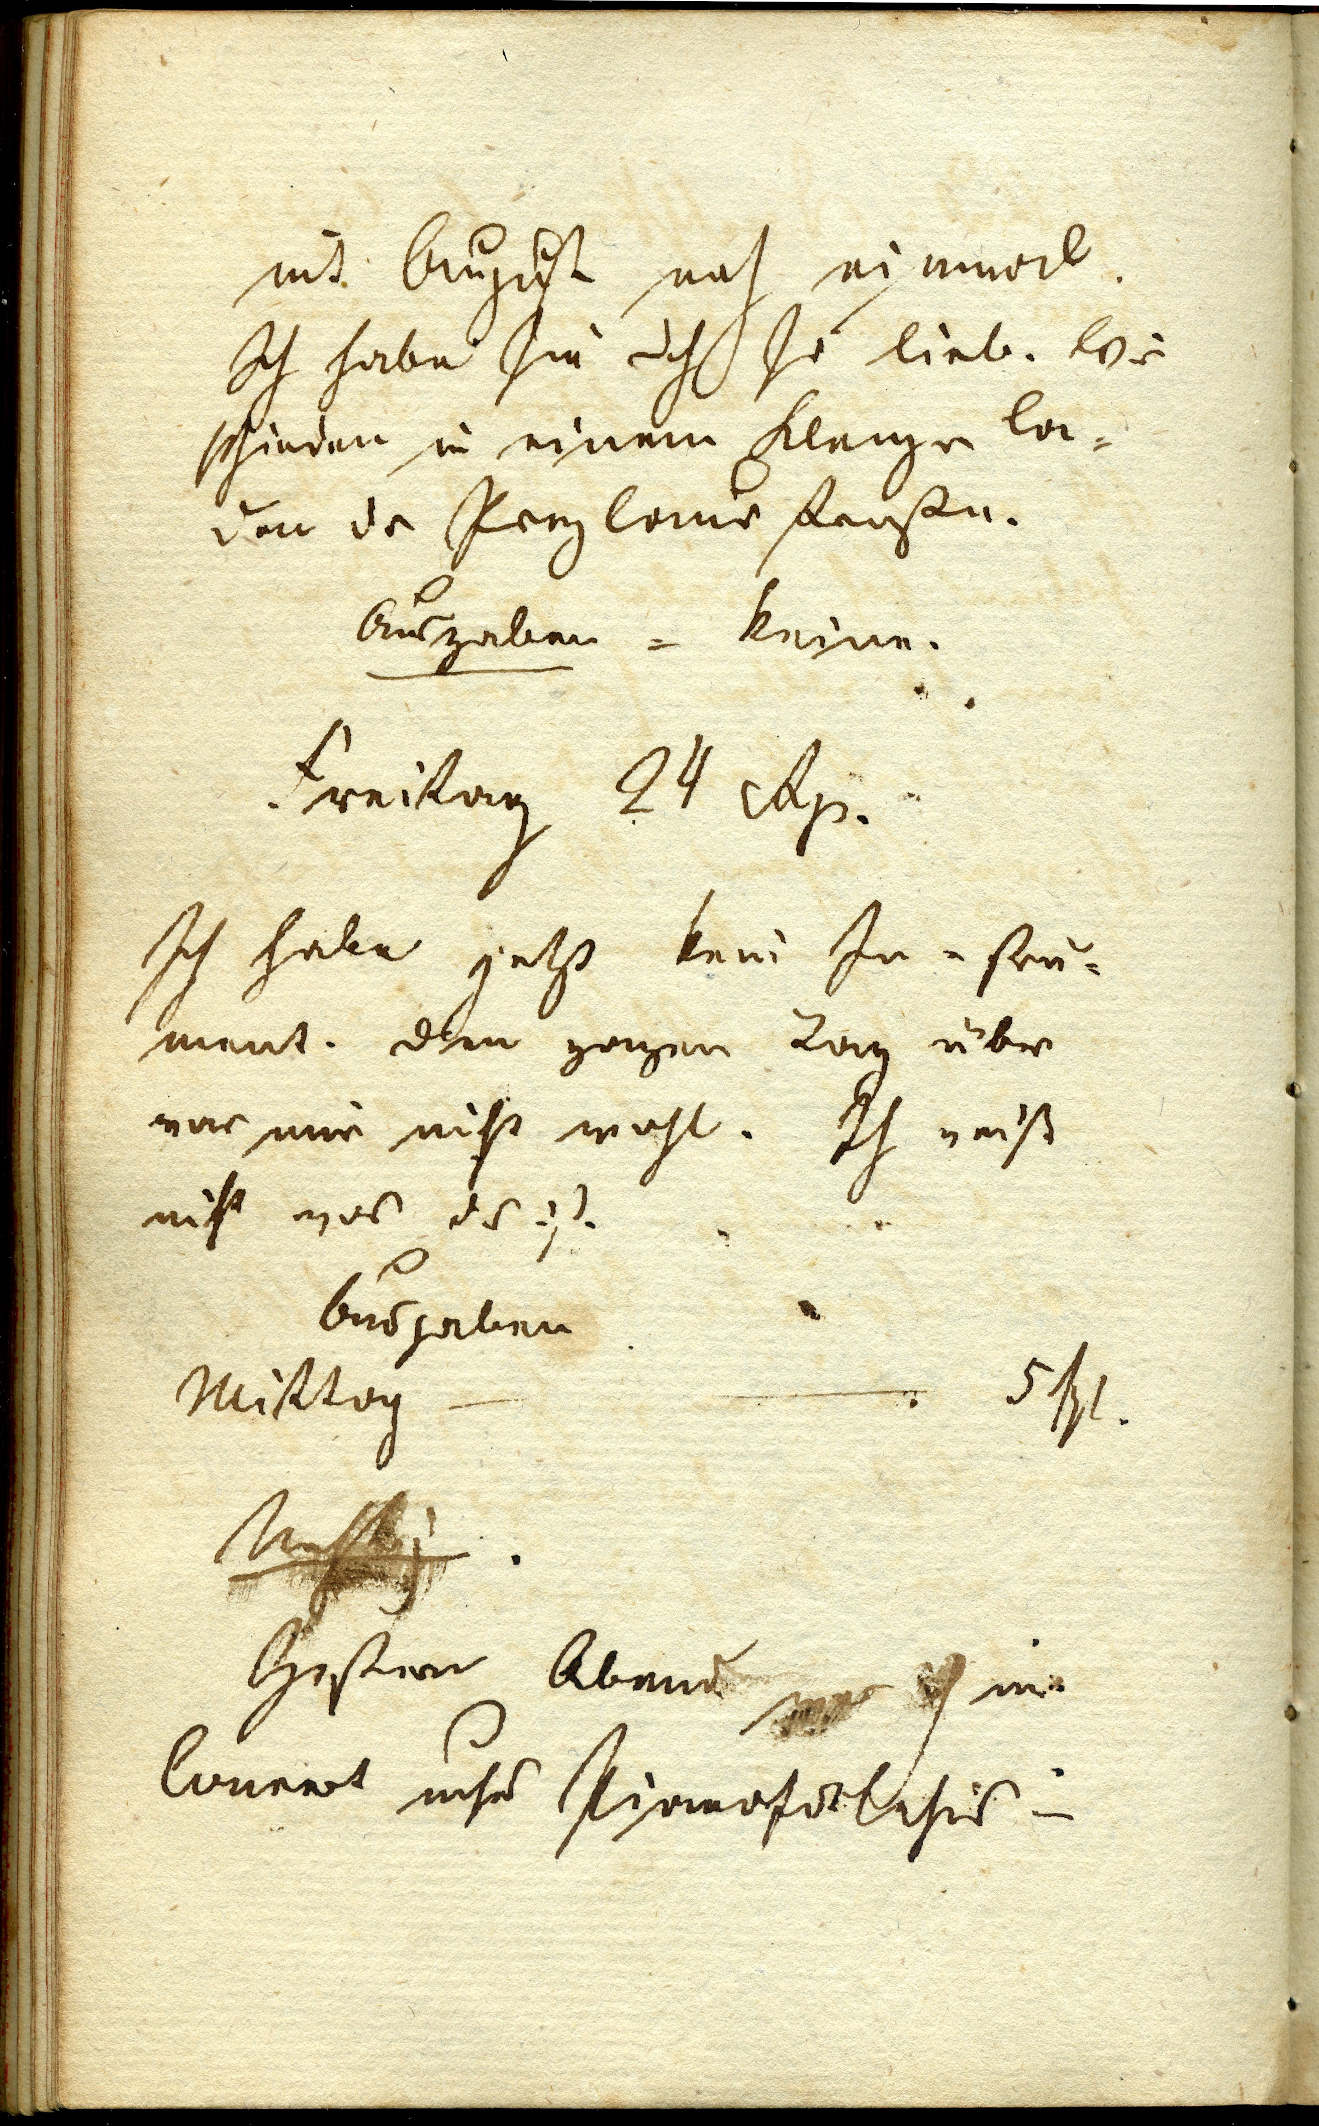 mit August noch einmal.
Ich habe sie doch so lieb. Wir
schieden in einem Klange la-
den der
Ausgaben = keine.
Freitag 24 Ap.
Ich habe jetzt kein In-stru-
ment. Den ganzen Tag über
war mir nicht wohl. Ich weiß
nicht was das ist.
Ausgaben
Mittag — — 5 sgl.
Gestern Abend war ich in
Concert